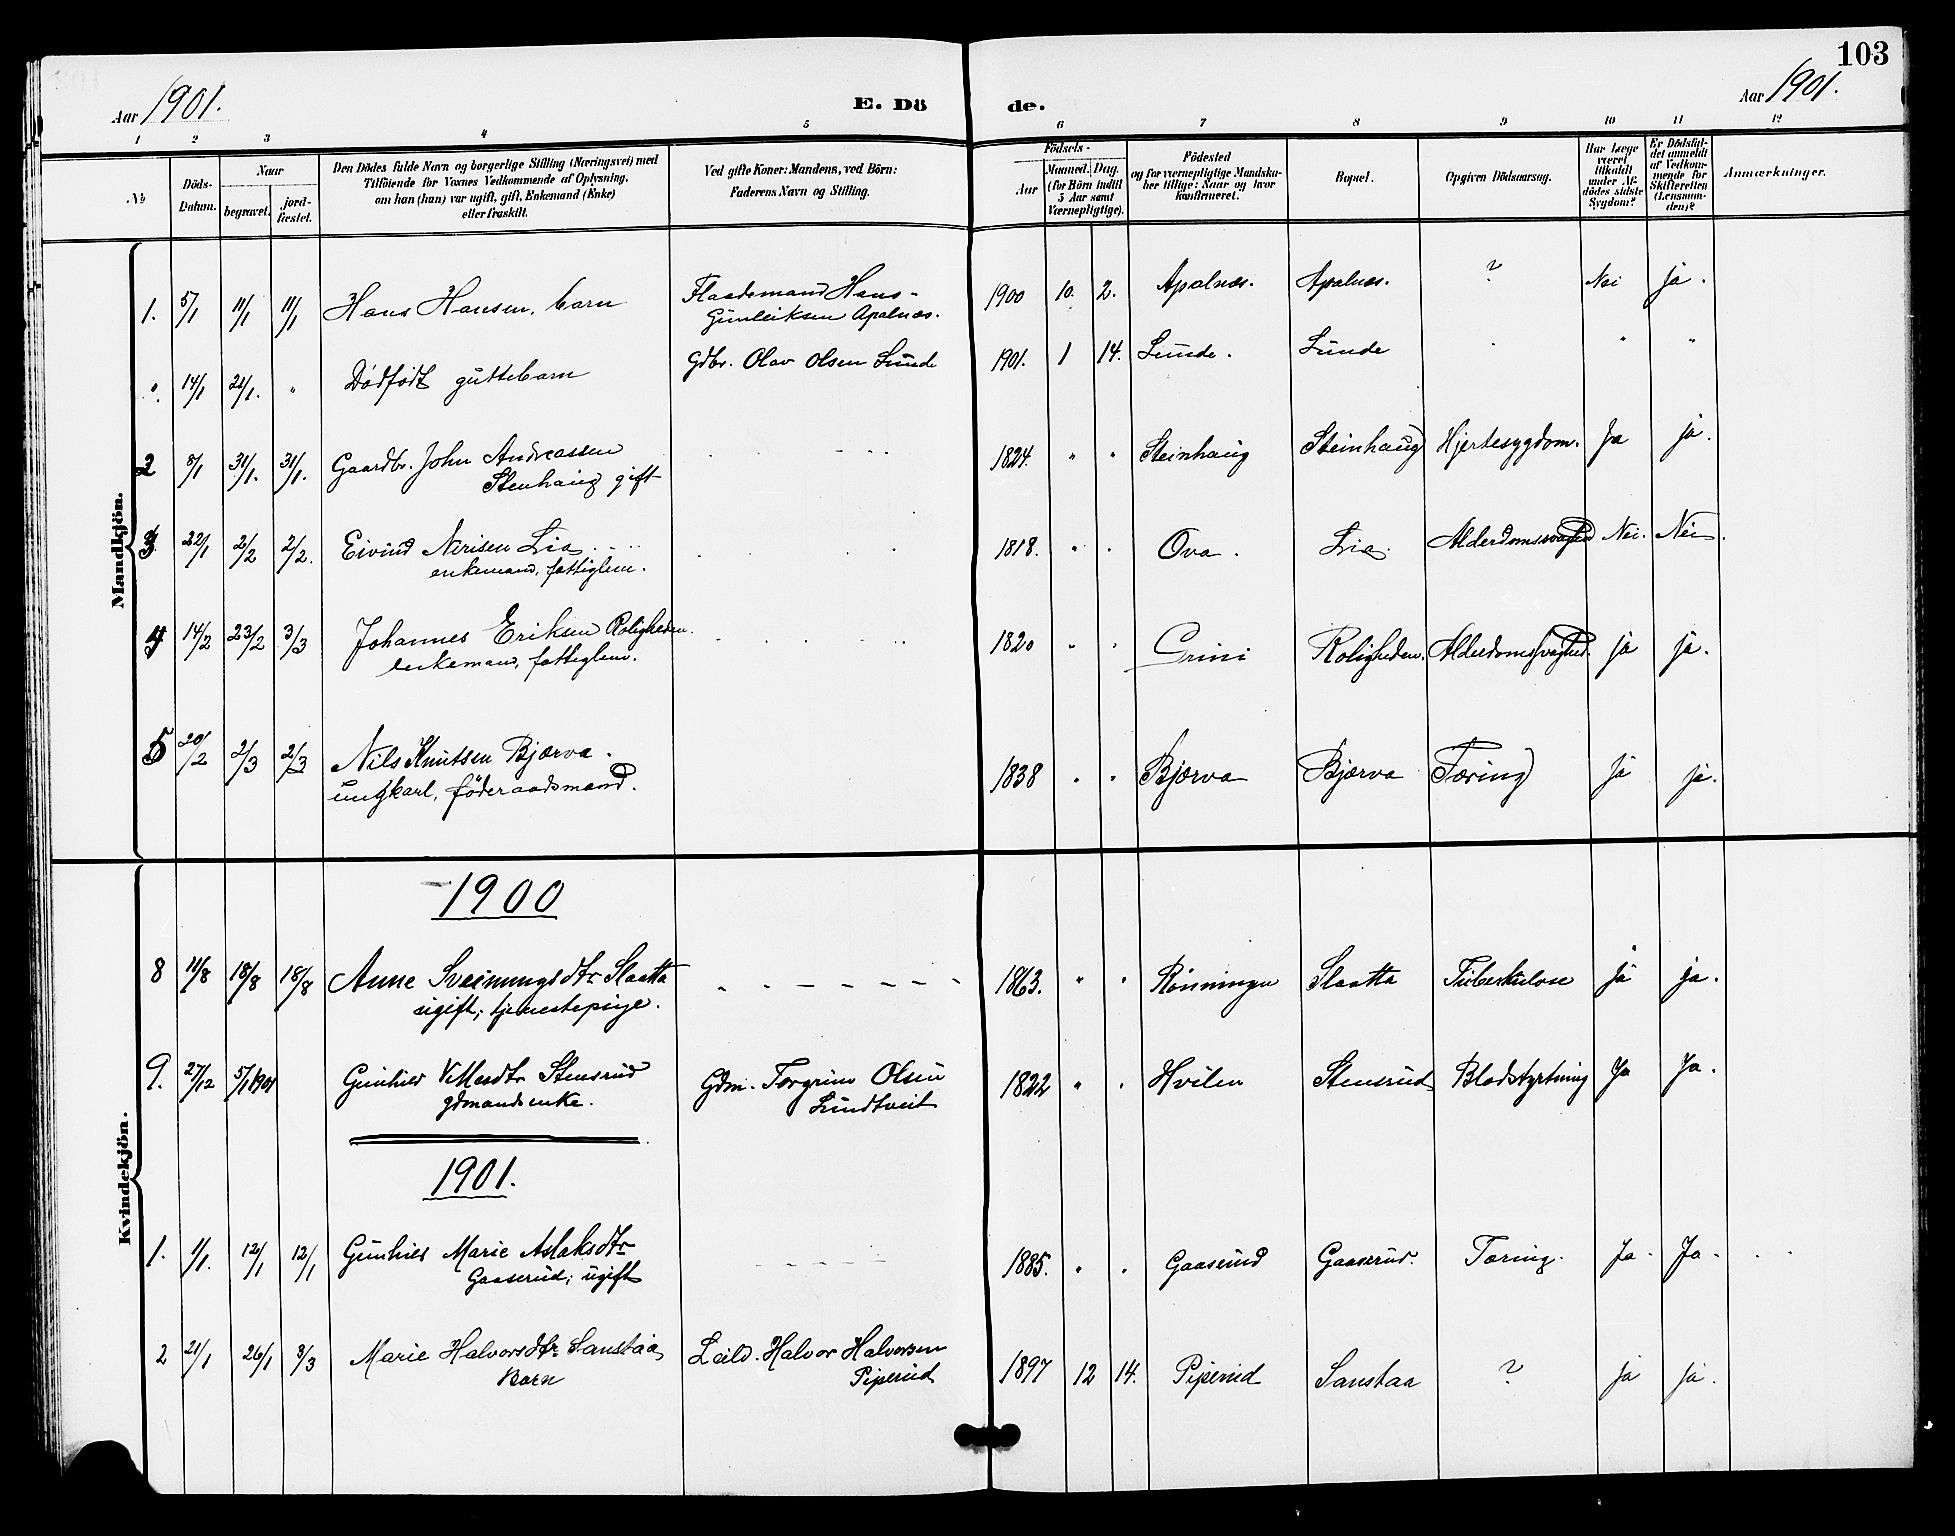 103
Aar 1901.
E. Dö de.
Aar 1901.
1 2 3 4 5 6 7 8 9 10 11 12
No
Döds-Datum.
Naar
begravet.
jord-fæstet.
Den Dödes fulde Navn og borgerlige Stilling (Næringsvei) med
Tilföiende for Voxnes Vedkommende af Oplysning,
om han (hun) var ugift, gift, Enkemand (Enke)
eller fraskilt.
Ved gifte Koner: Mandens, ved Börn:
Faderens Navn og Stilling.
Födsels-
Aar
Maaned. Dag.
(for Börn indtil
5 Aar samt
Værnepligtige).
Födested
og for værnepligtige Mandska-
ber tillige: Naar og hvor
konfirmeret.
Bopæl.
Opgiven Dödsaarsag.
Har Læge
været
tilkaldt
under Af-
dödes sidste
Sygdom?
Er Dödsfal-
det anmeldt
af Vedkom-
mende for
Skifteretten
(Lensman-
den)?
Anmærkninger.
Mandkjön.
1. 5/1 11/1 11/1 Hans Hansen, barn Flaademand Hans- 1900 10. 2. Apalnæs. Apalnæs. ? Nei ja.
Gunleiksen Apalnæs.
" 14/1 21/1. " Dödfödt guttebarn Gdbr. Olav Olsen Lunde 1901. 1 14. Lunde. Lunde " "
2 5/1 31/1. 31/1. Gaardbr. John Andreassen 1824. " " Steinhaug Steinhaug Hjertesygdom. Ja ja.
Stenhaug gift
3 22/1 2/2 2/2. Eivind Nirisen Lia 1818. " " Ova. Lia. Alderdomssvaghed Nei. Nei.
enkemand, fattiglem.
4 14/2 23/2 3/3 Johannes Eriksen Roligheden. 1820 " " Grini Roligheden. Alderdomssvaghed. ja ja.
enkemand, fattiglem.
5 20/2 2/3 2/3 Nils Knutsen Bjærva. 1838 " " Bjærva Bjærva Tæring ja ja.
ungkarl, föderaadsmand.
Kvindekjön.
1900
8 11/8 18/8 18/8 Anne Sveinungsdtr Slaatta 1863. " " Rönningen Slaatta Tuberkulose ja ja.
ugift; tjenestepige.
9. 27/12 5/1 1901 Gunhild dtr Stensrud Gdm. Torgrim Olsen 1822 " " Hvilen Stensrud Blodstyrtning Ja Ja.
gdmandsenke. Lundtveit
1901.
1. 1/1. 12/1 12/1 Gunhild Marie Aslaksdtr 1885. " " Gaaserud Gaaserud. Tæring. Ja. Ja.
Gaaserud; ugift
2 21/1 26/1 3/3 Marie Halvorsdtr Sanstaa Leild. Halvor Halvorsen 1897 12 14. Piperud Sanstaa ? ja ja.
Barn Piperud